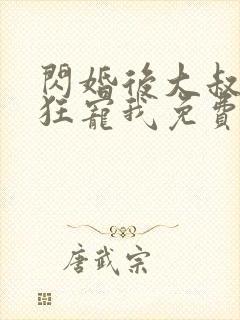 閃婚後大叔
狂寵我免費
唐武宗